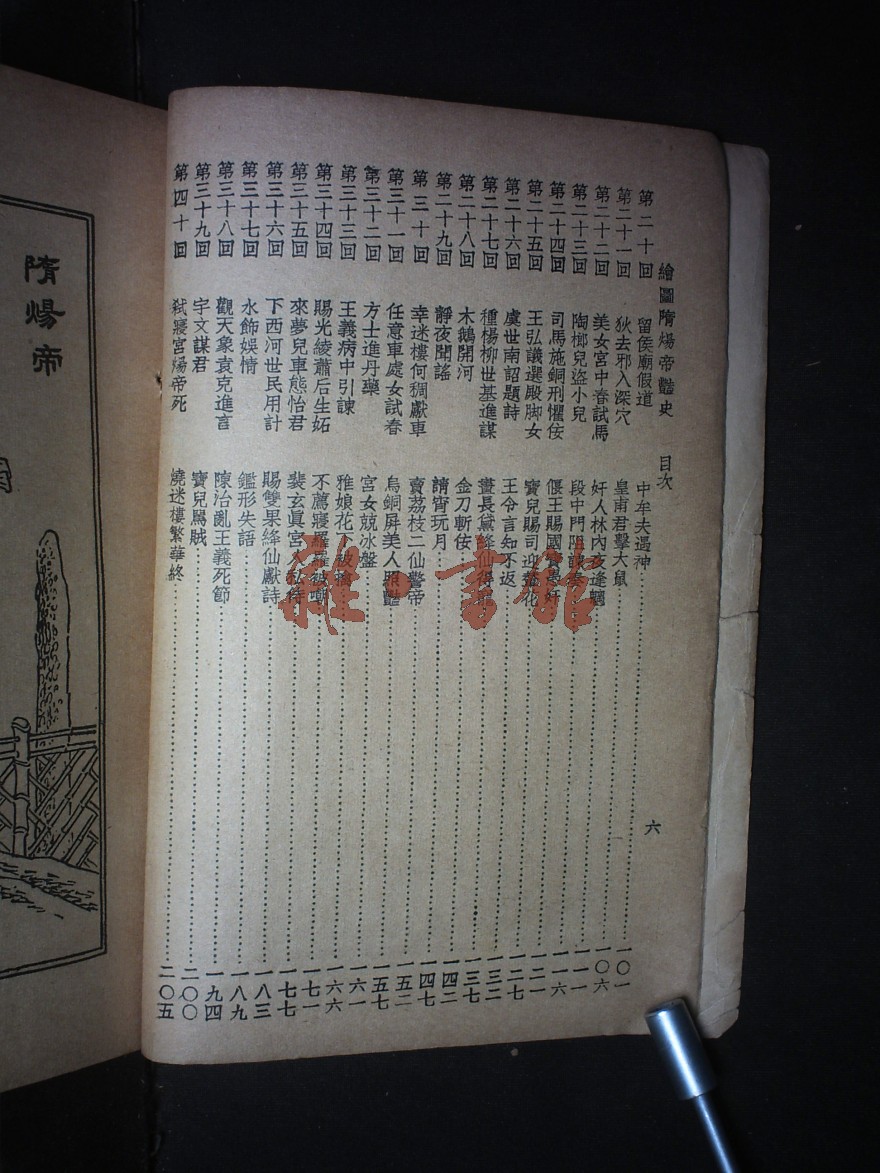 繪圖隋煬帝豔史 目次 六
第二十回 留侯廟假道 中牟夫遇神 一〇一
第二十一回 狄去邪入深穴 皇甫君擊大鼠 一〇六
第二十二回 美女宮中春試馬 奸人林內夜逢魑 一一一
第二十三回 陶榔兒盜小兒 段中門阻 一一六
第二十四回 司馬施銅刑懼佞 偃王賜國寶 一二一
第二十五回 王弘議選殿脚女 寶兒賜司迎輦花 一二七
第二十六回 虞世南詔題詩 王令言知不返 一三二
第二十七回 種楊柳世基進謀 畫長黛絳仙得 一三七
第二十八回 木鵝開河 金刀斬佞 一四二
第二十九回 靜夜聞謠 清宵玩月 一四七
第三十回 幸迷樓何稠獻車 賣荔枝二仙警帝 一五二
第三十一回 任意車處女試春 烏銅屏美人照豔 一五七
第三十二回 方士進丹藥 宮女兢冰盤 一六一
第三十三回 王義病中引諫 雅娘花 一六六
第三十四回 賜光綾蕭后生妬 不薦寢羅羅被嘲 一七一
第三十五回 來夢兒車態怡君 裴玄眞宮人私侍 一七七
第三十六回 下西河世民用計 賜雙果絳仙獻詩 一八三
第三十七回 水飾娛情 鑑形失語 一八九
第三十八回 觀天象袁克進言 陳治亂王義死節 一九四
第三十九回 宇文謀君 寶兒駡賊 二〇〇
第四十回 弒寢宮煬帝死 燒迷樓繁華終 二〇五
隋煬帝
書館